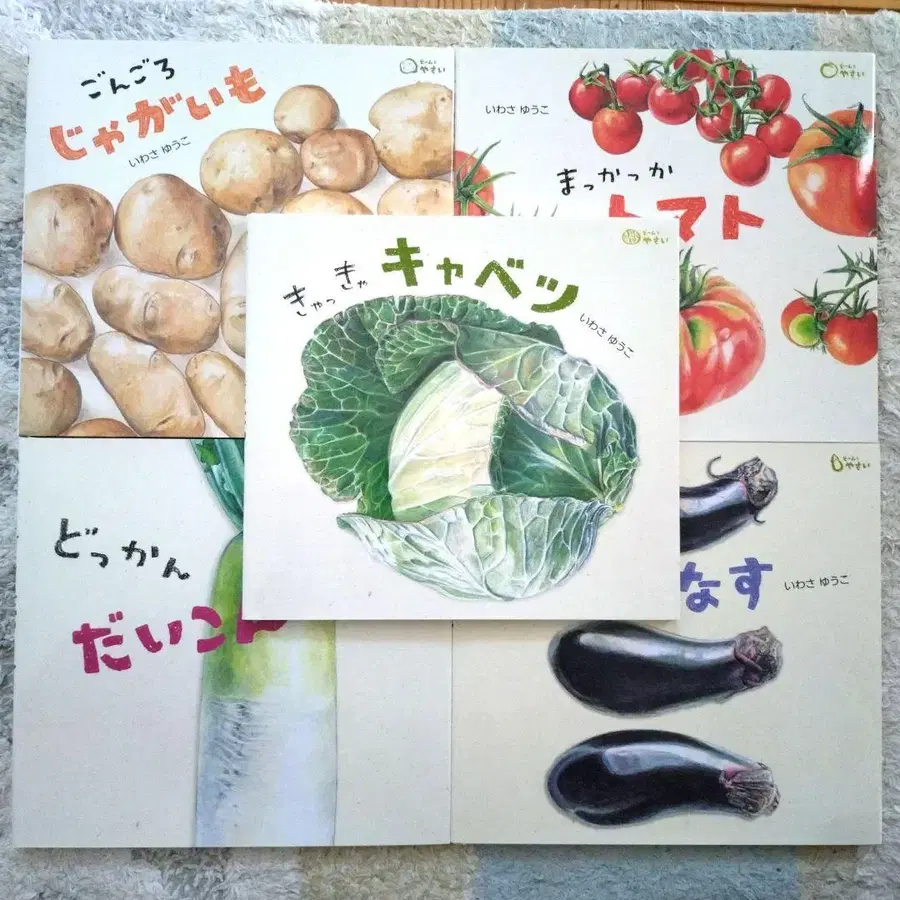 ごんごろ
じゃがいも
いわさ ゆうこ
どーんと
やさい
まっかっか
トマト
いわさ ゆうこ
どーんと
やさい
きゃっきゃ
キャベツ
いわさ ゆうこ
どーんと
やさい
どっかん
だいこん
なす
いわさ ゆうこ
どーんと
やさい